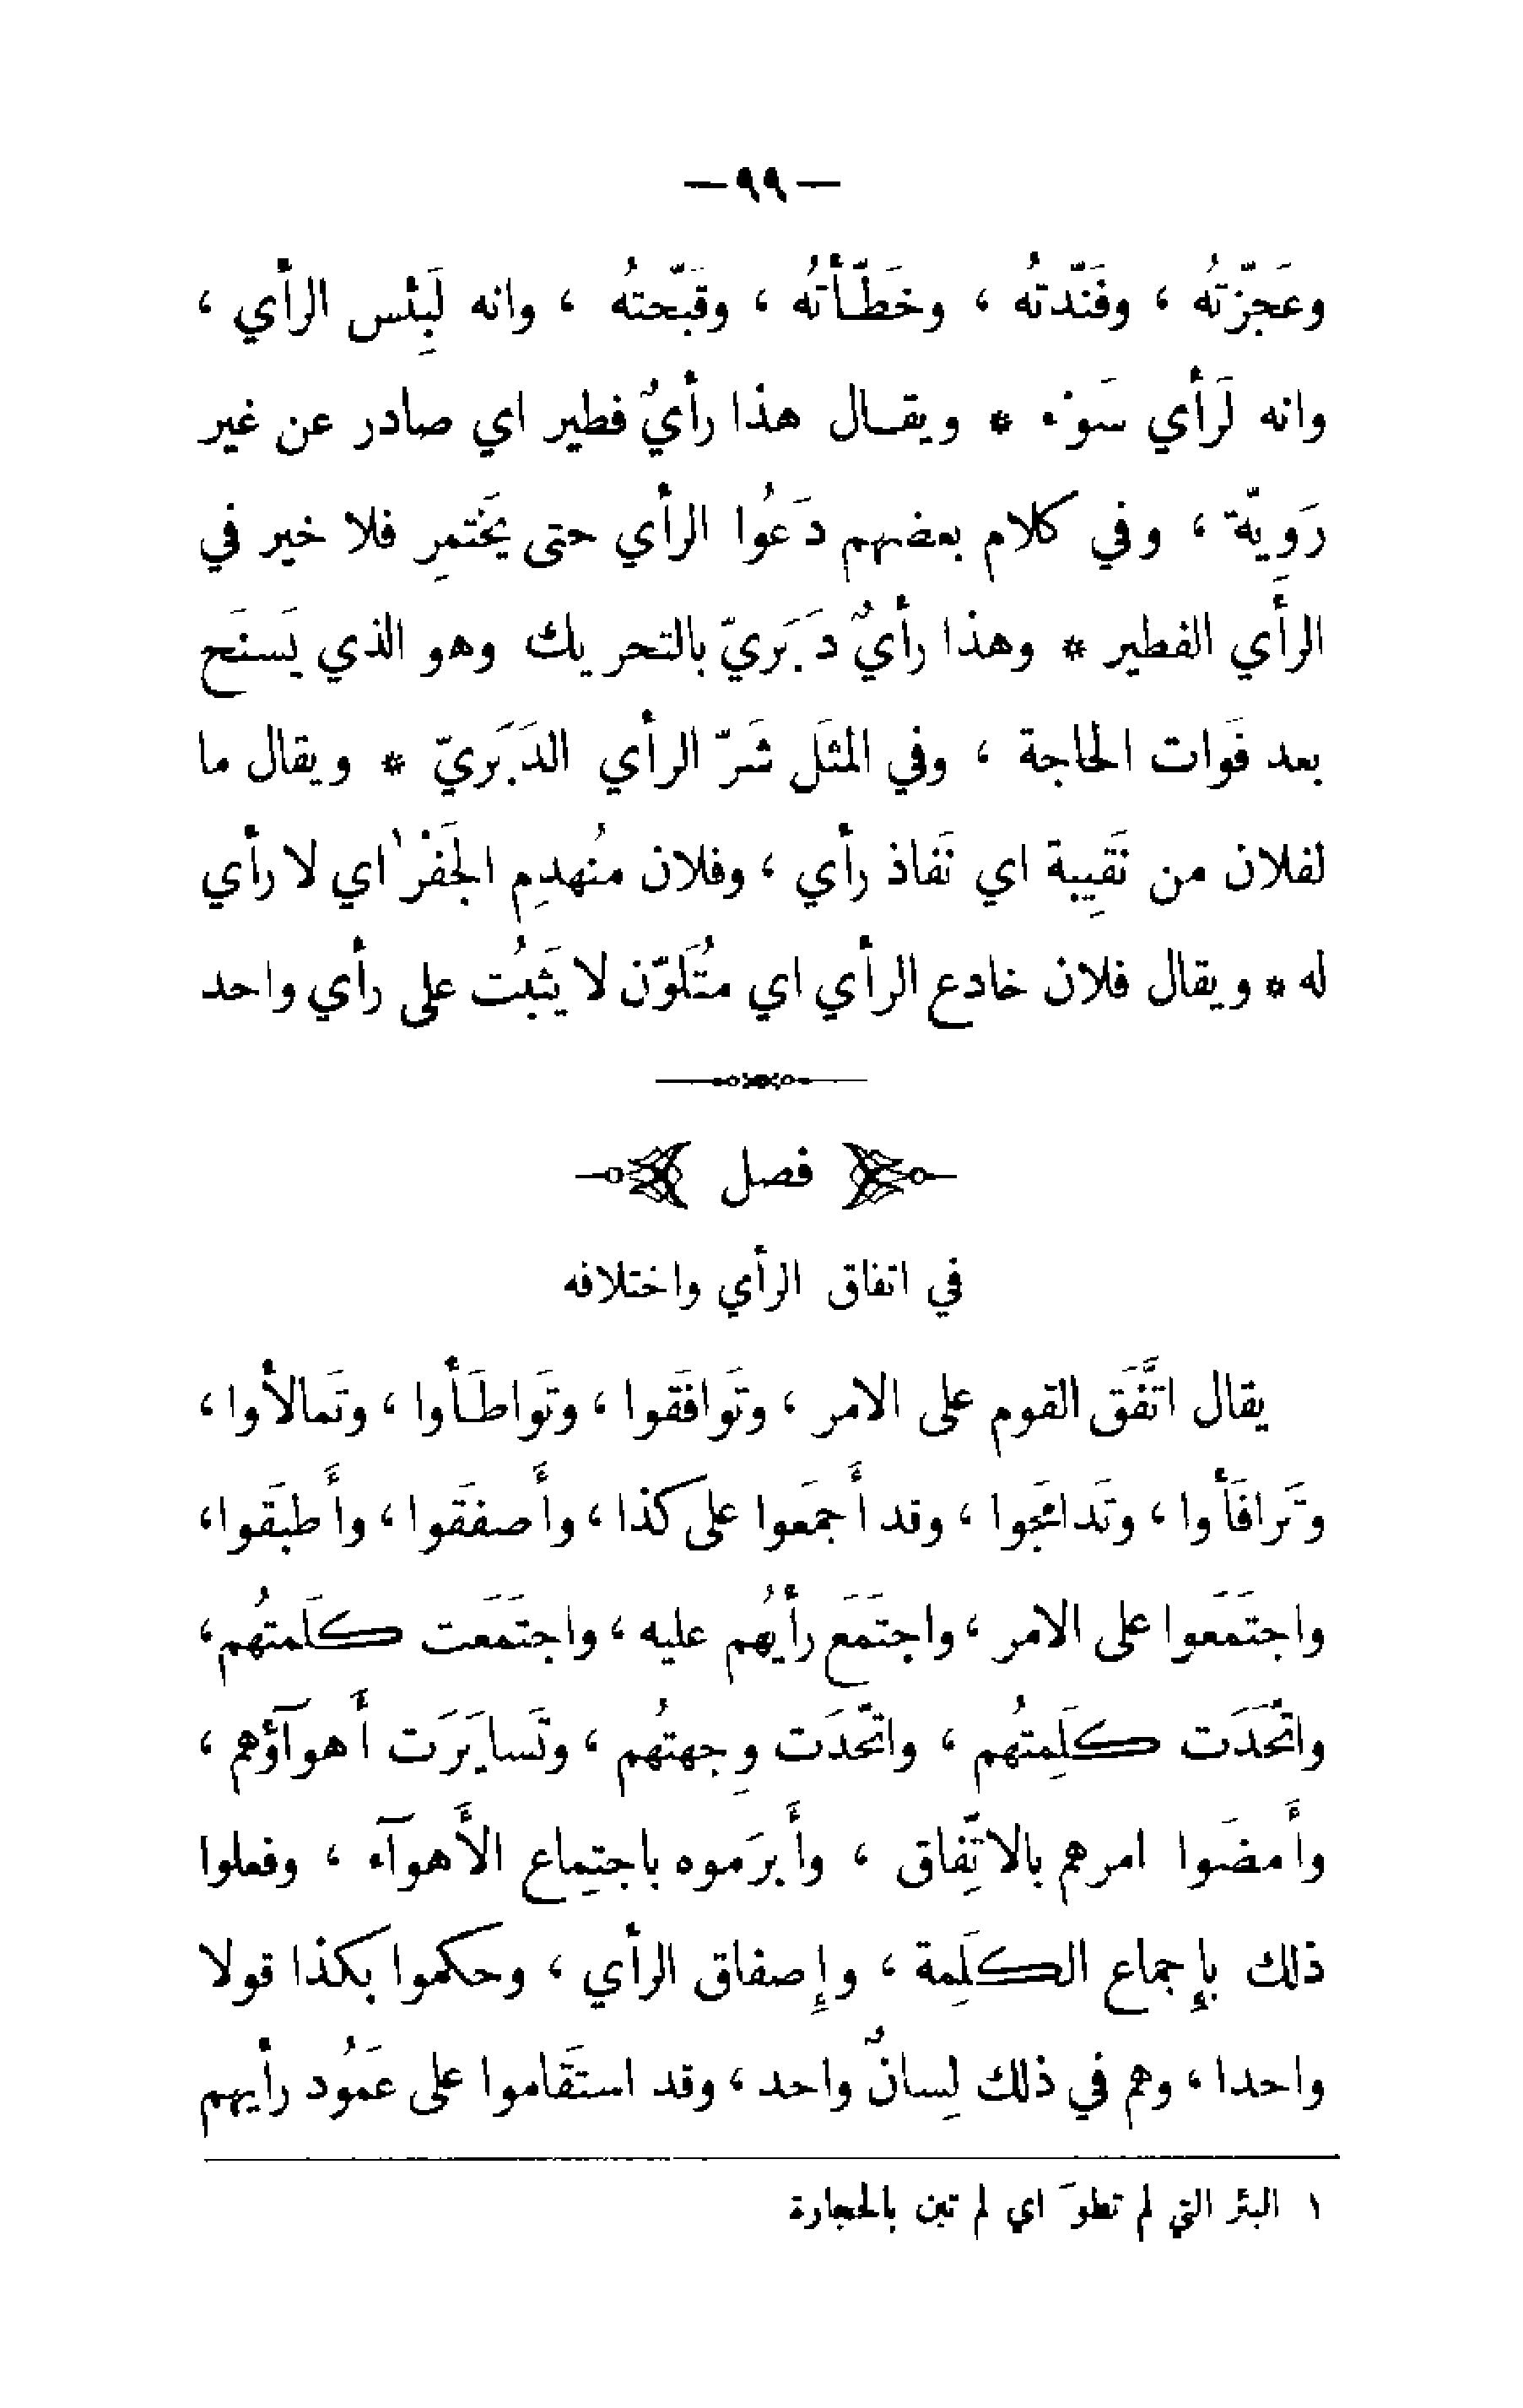 — ٩٩ —
وعَجَّزتُه ، وفَنَّدتُه ، وخَطَّأتُه ، وقَبَّحتُه ، وانه لَبِئس الرأي ،
وانه لَرأي سَوْء * ويقال هذا رأيٌ فطير اي صادر عن غير
رَوِيّة ، وفي كلام بعضهم دَعُوا الرأي حتى يَختمِر فلا خير في
الرأي الفطير * وهذا رأيٌ دَبَريّ بالتحريك وهو الذي يَسنَح
بعد فَوات الحاجة ، وفي المثَل شَرّ الرأي الدَبَريّ * ويقال ما
لفلان من نَقِيبة اي نَفاذ رأي ، وفلان مُنهدِم الجَفْر١ اي لا رأي
له * ويقال فلان خادع الرأي اي مُتَلَوّن لا يَثبُت على رأي واحد
فصل
في اتفاق الرأي واختلافه
يقال اتَّفَق القوم على الامر ، وتَوافَقوا ، وتَواطَأوا ، وتَمالأوا ،
وتَرافَأوا ، وتَدامَجوا ، وقد أَجمَعوا على كذا ، وأَصفَقوا ، وأَطبَقوا ،
واجتَمَعوا على الامر ، واجتَمَع رأيُهم عليه ، واجتَمَعت كَلمتُهم ،
واتَّحَدَت كَلِمتُهم ، واتَّحَدَت وِجهتُهم ، وتَسايَرَت أَهوآؤهم ،
وأَمضَوا امرهم بالاتِّفاق ، وأَبرَموه باجتِماع الأَهوآء ، وفعلوا
ذلك بإِجماع الكَلِمة ، وإِصفاق الرأي ، وحكموا بكذا قولا
واحدا ، وهم في ذلك لِسانٌ واحد ، وقد استَقاموا على عَمُود رأيهم
١ البئر التي لم تطوَ اي لم تبن بالحجارة